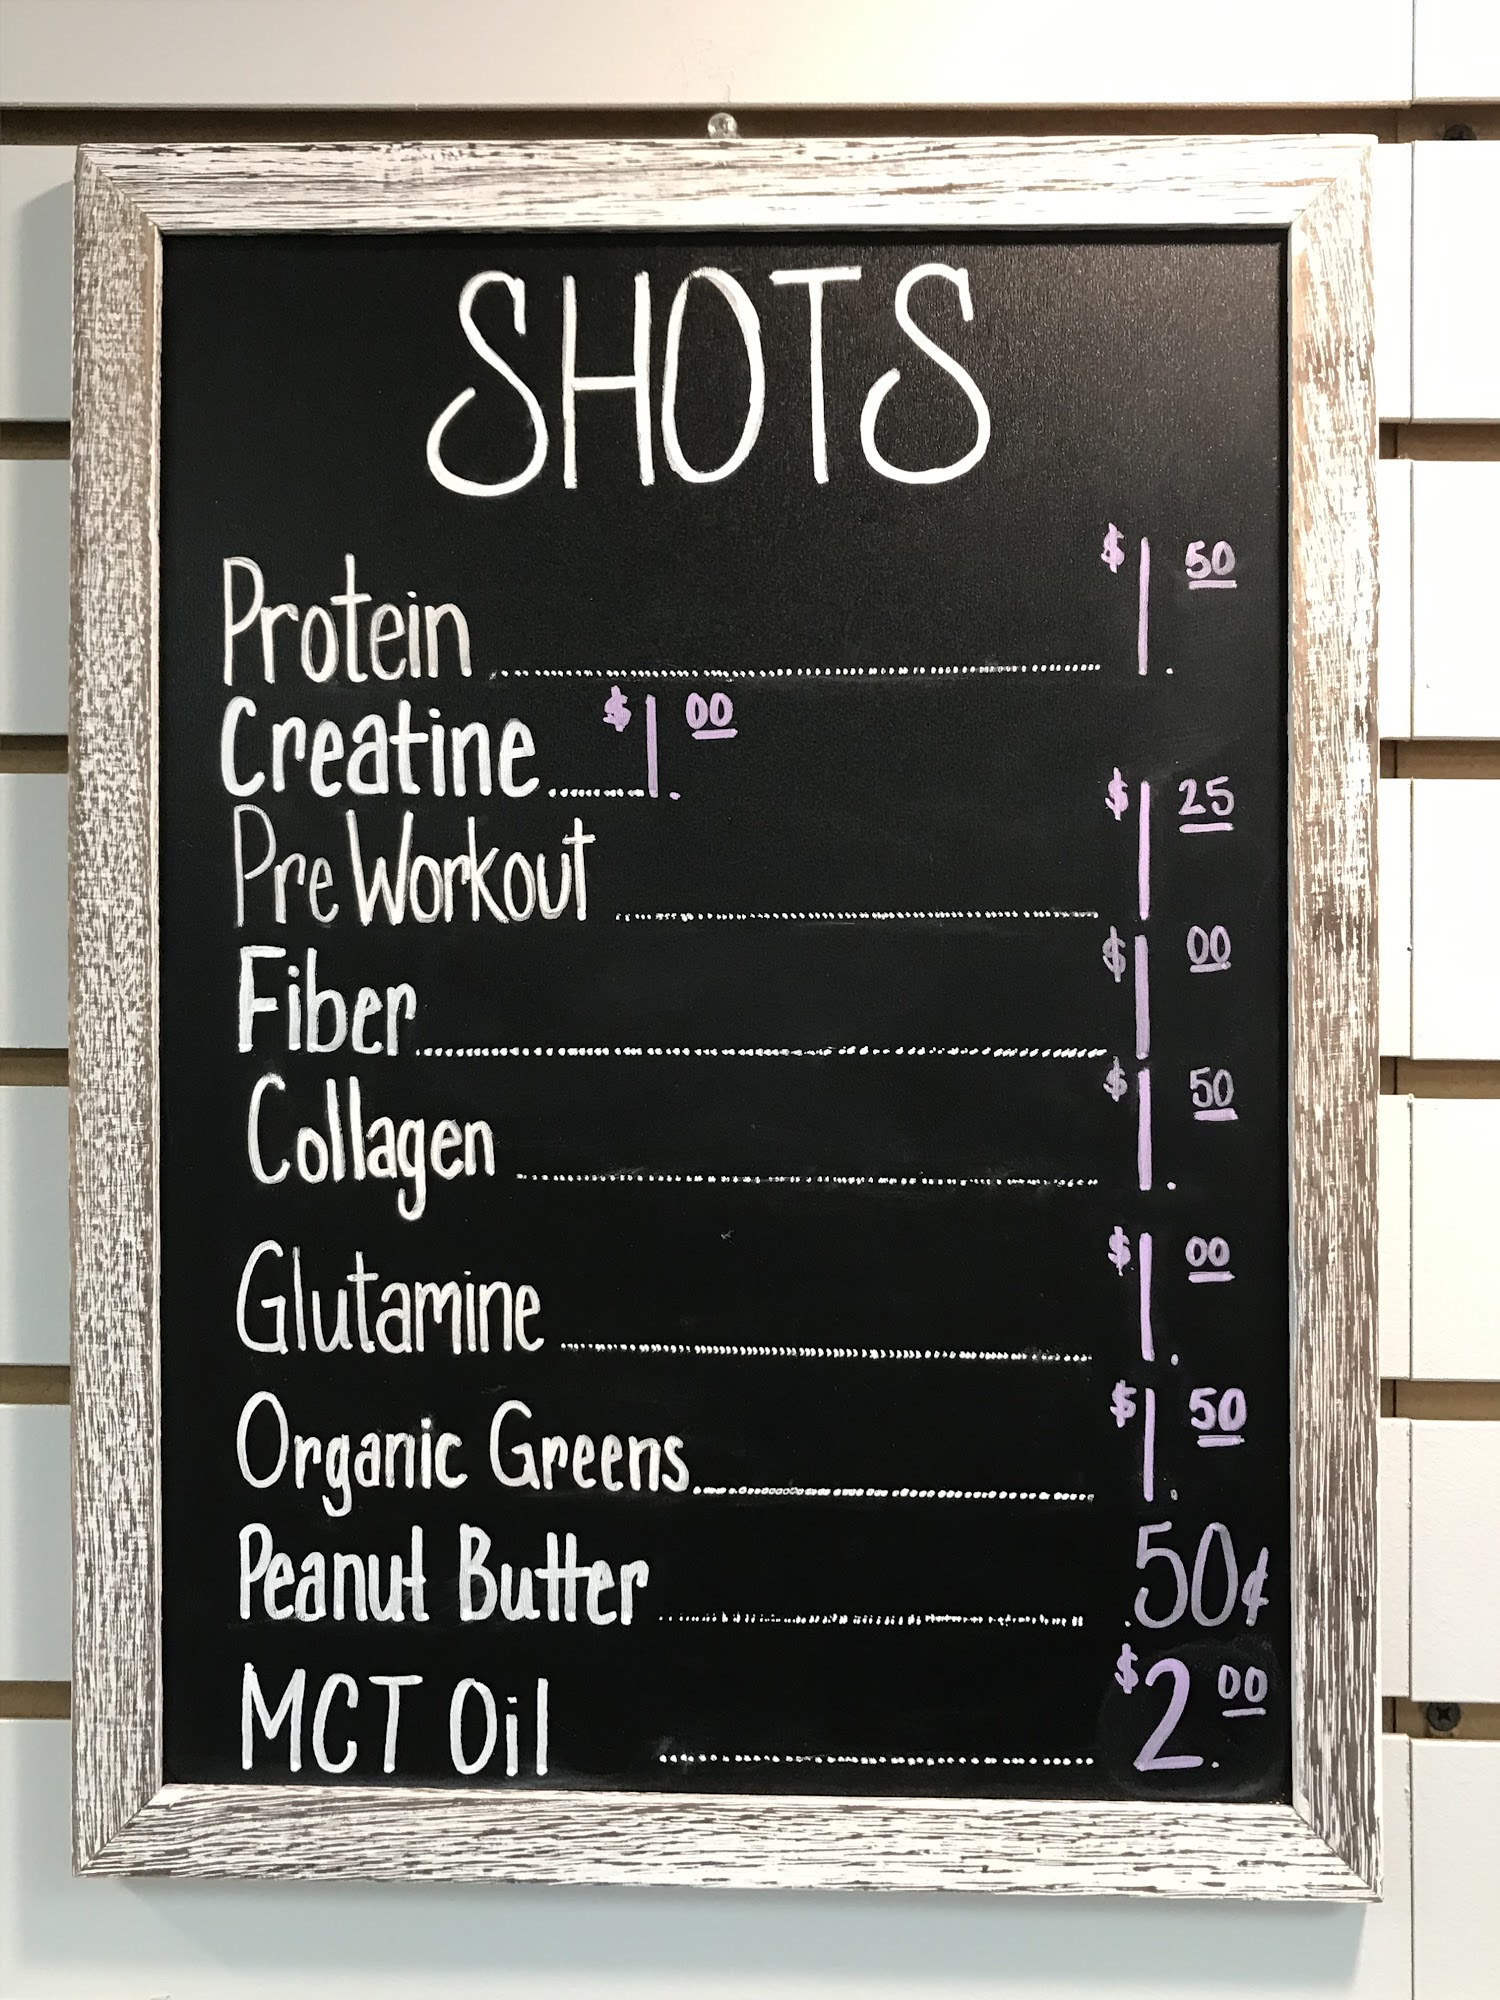 SHOTS
Protein ........ $1.50
Creatine ........ $1.00
Pre Workout ........ $1 25
Fiber ........ $1 00
Collagen ........ $1.50
Glutamine ........ $1.00
Organic Greens ........ $1.50
Peanut Butter ........ .50¢
MCT Oil ........ $2.00